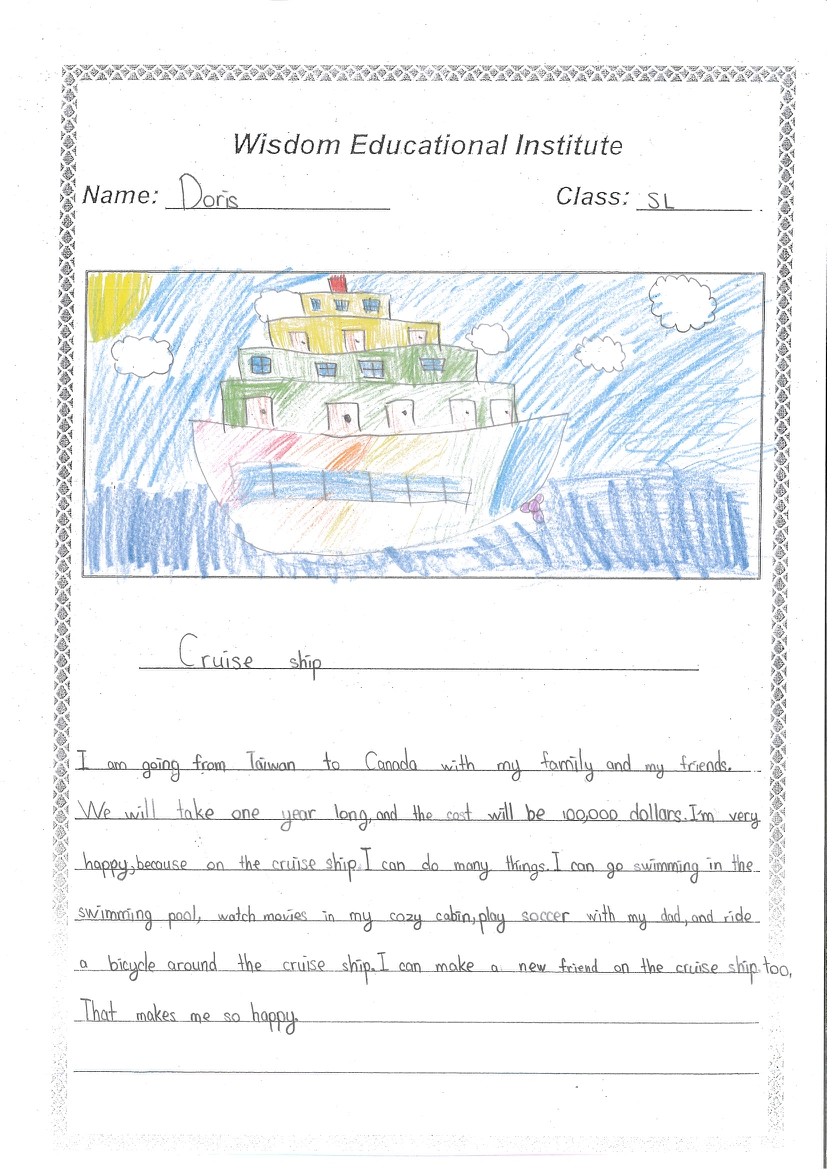 Wisdom Educational Institute
Name: Doris Class: SL
Cruise ship
I am going from Taiwan to Canada with my family and my friends.
We will take one year long, and the cost will be 100,000 dollars. I'm very
happy, because on the cruise ship. I can do many things. I can go swimming in the
swimming pool, watch movies in my cozy cabin, play soccer with my dad, and ride
a bicycle around the cruise ship. I can make a new friend on the cruise ship too,
That makes me so happy.